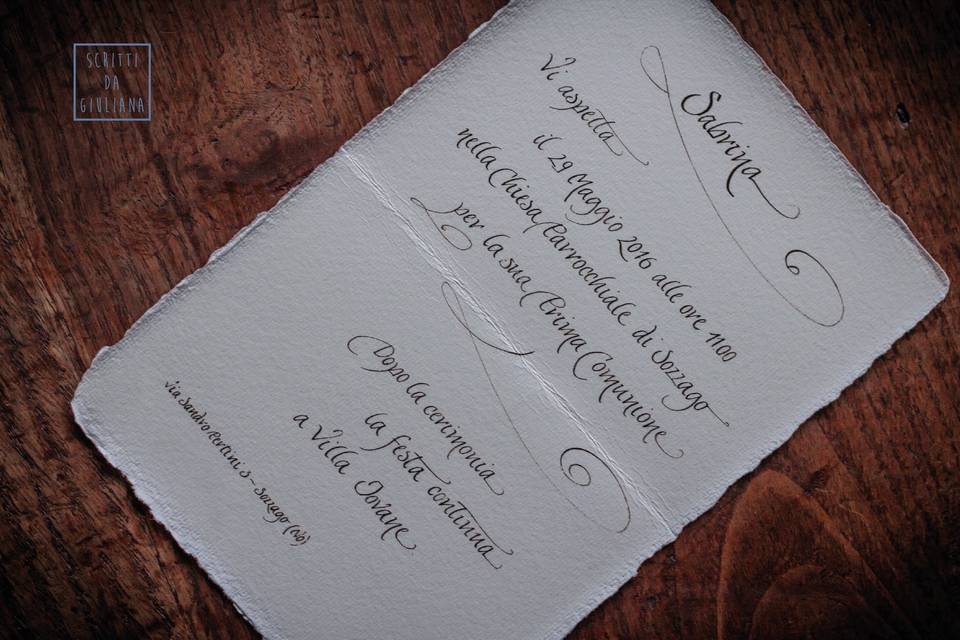 SCRITTI
DA
GIULIANA
Sabrina
Vi aspetta
il 29 Maggio 2016 alle ore 1100
nella Chiesa Parrocchiale di Sozzago
per la sua Prima Comunione
Dopo la cerimonia
la festa continua
a Villa Iovane
via Sandro Pertini 5 - Sozzago (No)